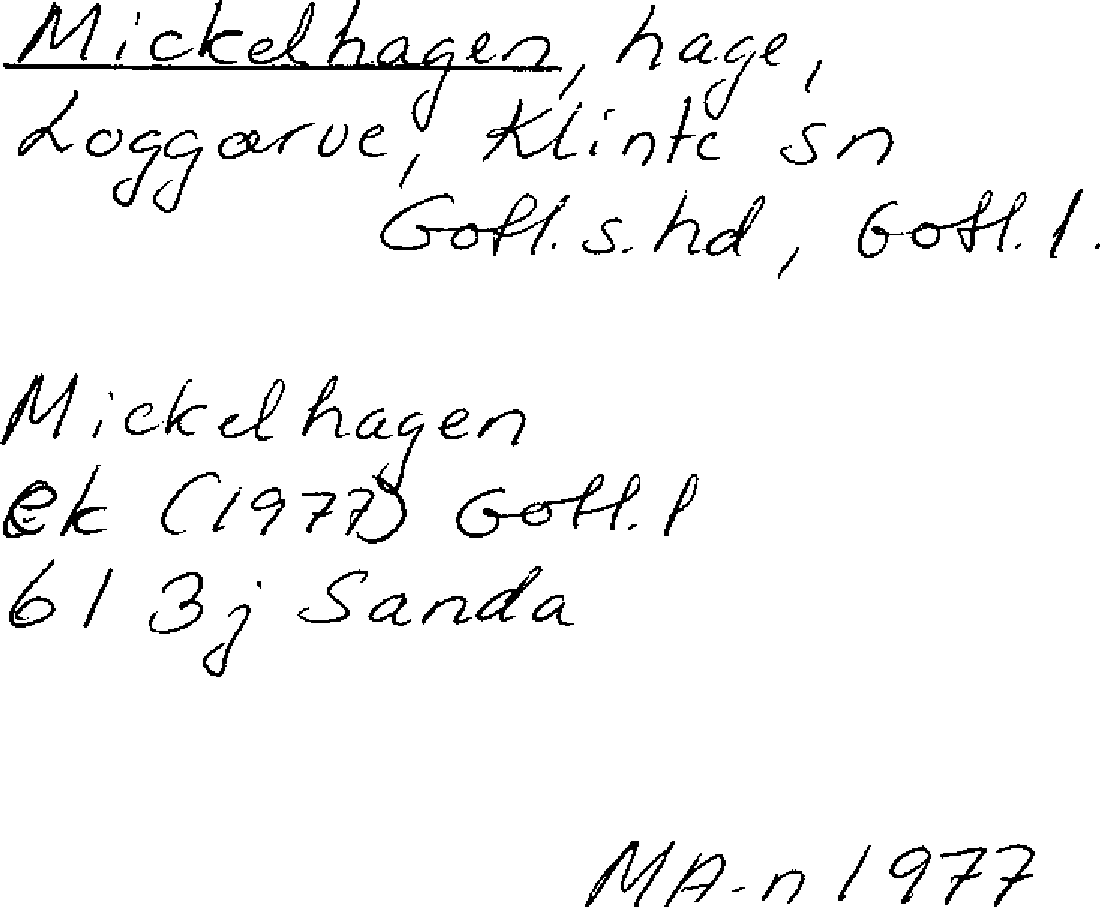 Mickelhagen, hage,
Loggarve, Klinte sn
Gotl. s. hd, Gotl. l.
Mickelhagen
ek (1977) Gotl. l
61 3j Sanda
MA-n 1977